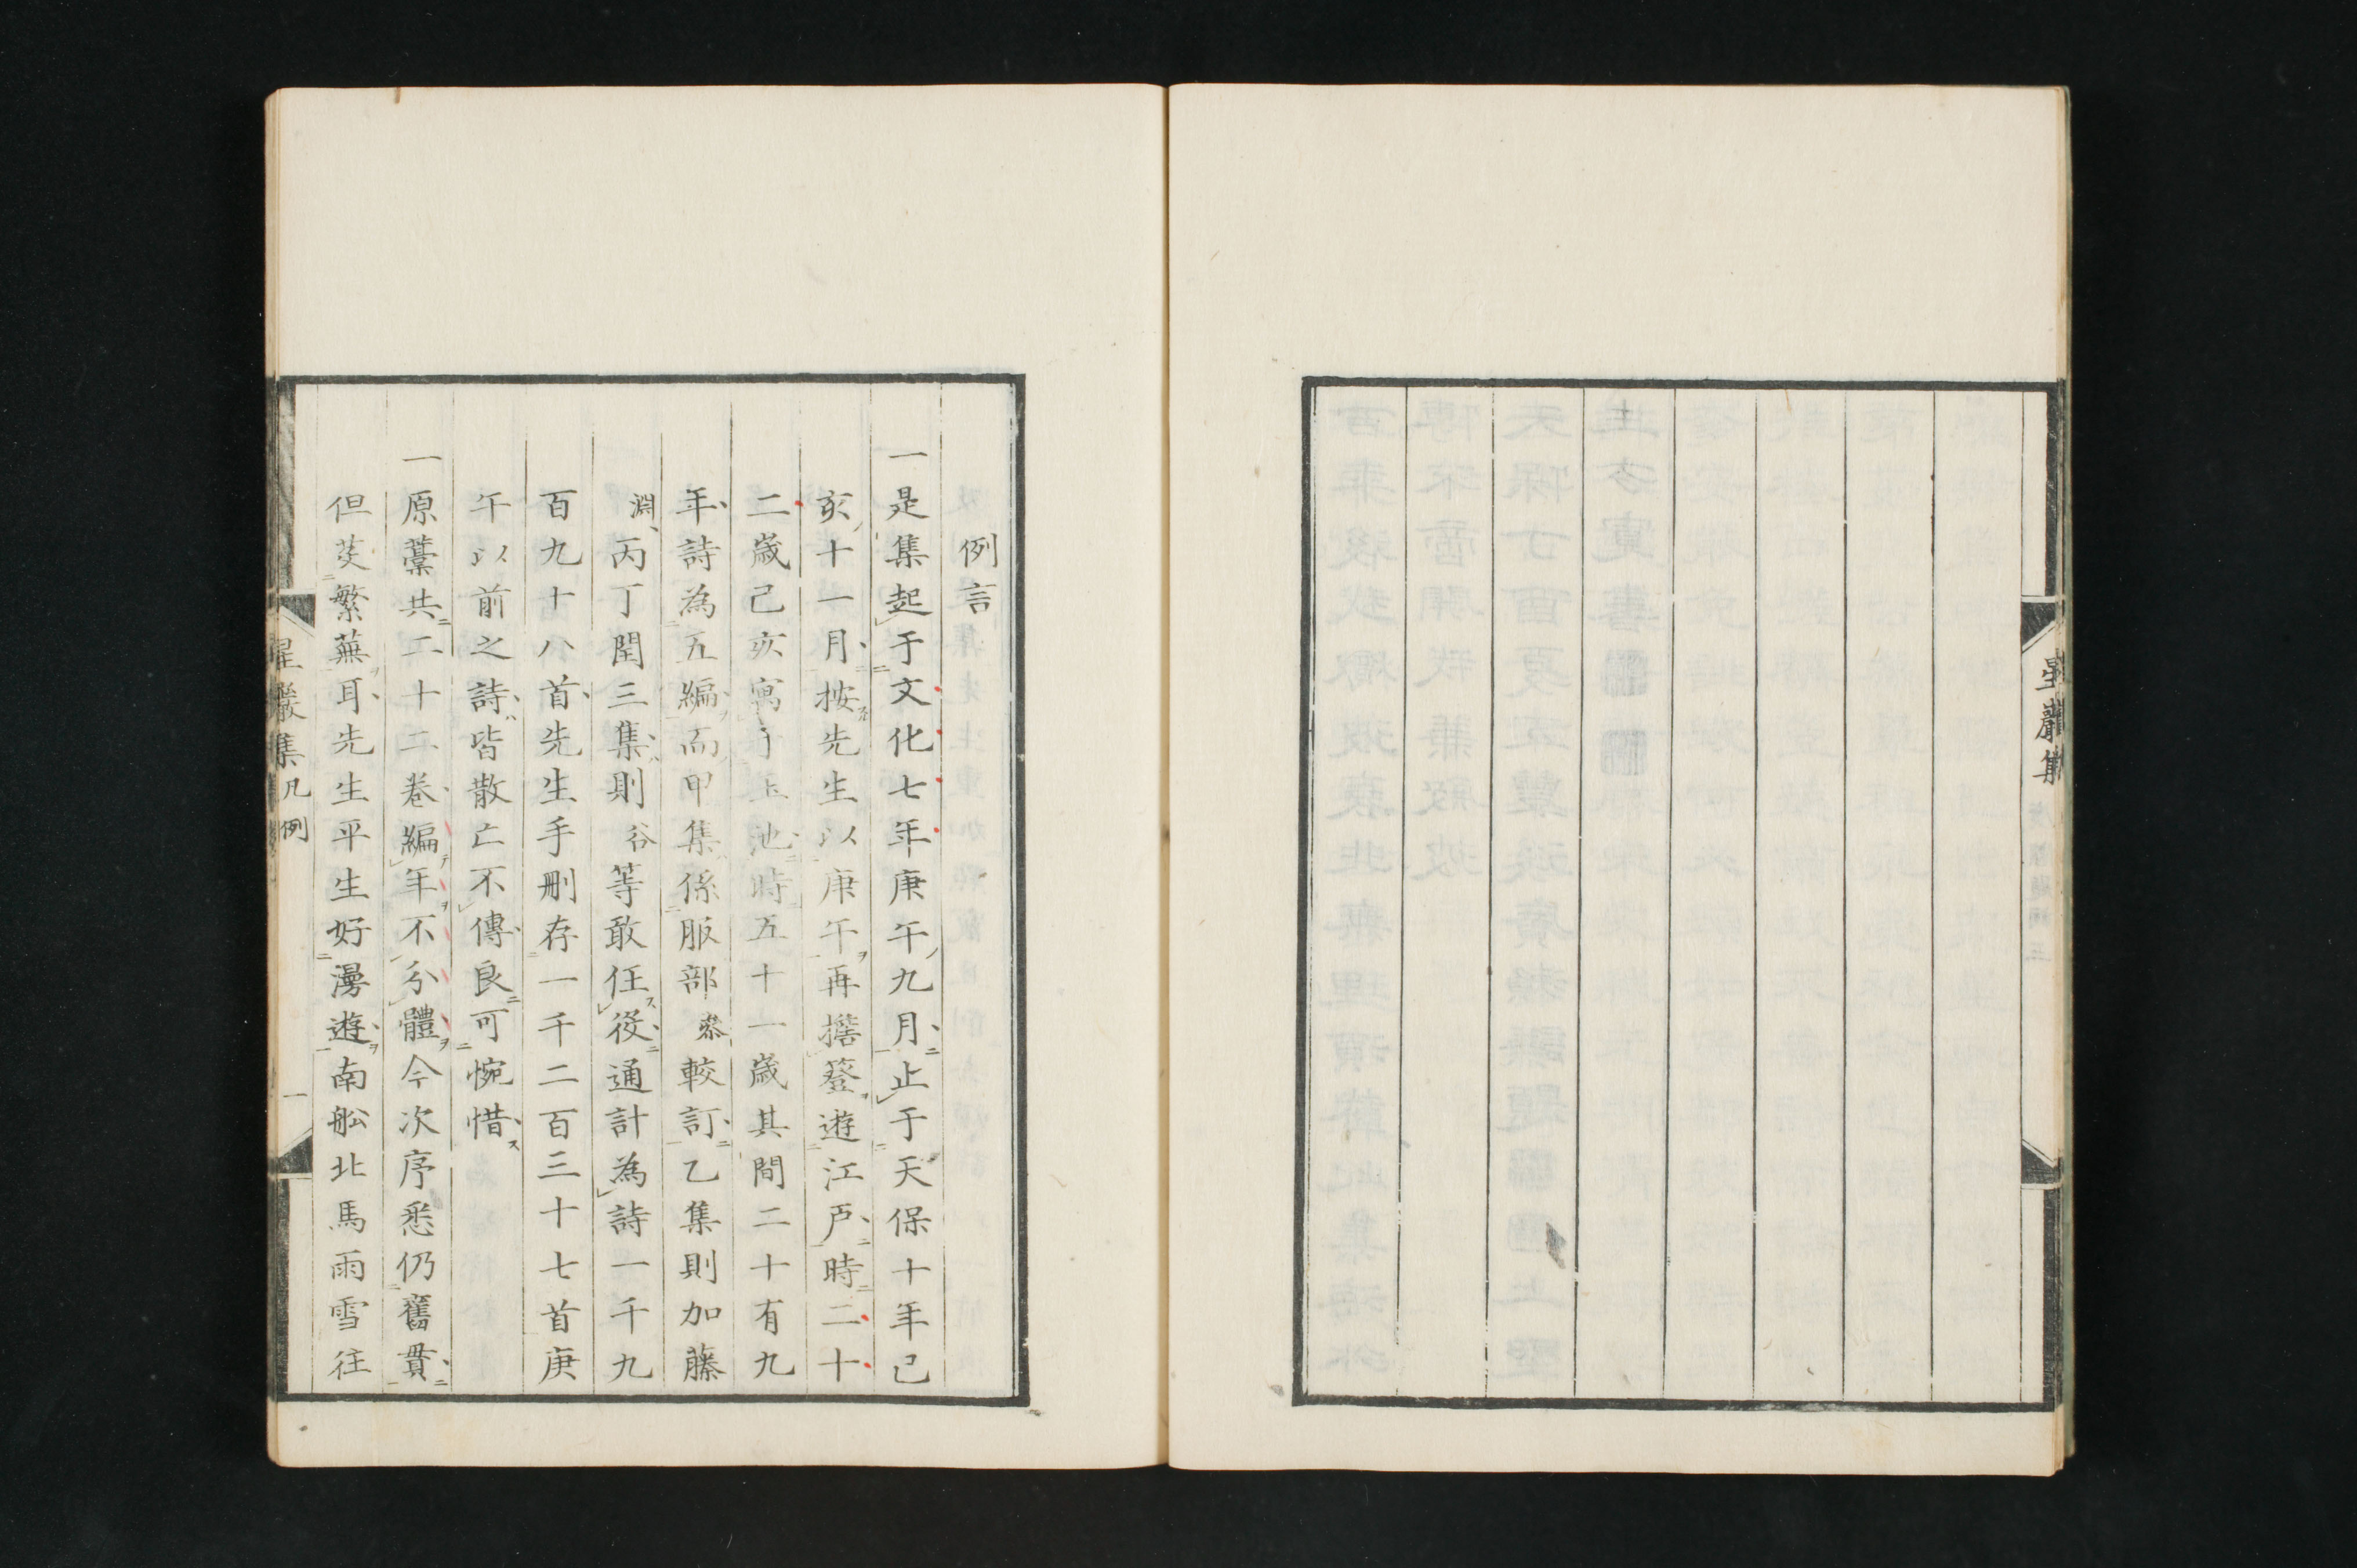 星巖集
例言
一是集起于文化七年庚午九月止于天保十年己
亥十一月按先生以庚午再擔簦遊江戸時二十
二歳己亥寓于玉池時五十一歳其間二十有九
年詩為五編而甲集係服部 㳟較訂乙集則加藤
淵丙丁閏三集則谷等敢任役通計為詩一千九
百九十八首先生手刪存一千二百三十七首庚
午以前之詩皆散亡不傳良可惋惜
一原藳共二十二巻編年不分體今次序悉仍舊貫
但芟繁蕪耳先生平生好漫遊南舩北馬雨雪往
星巖集 凡例 一